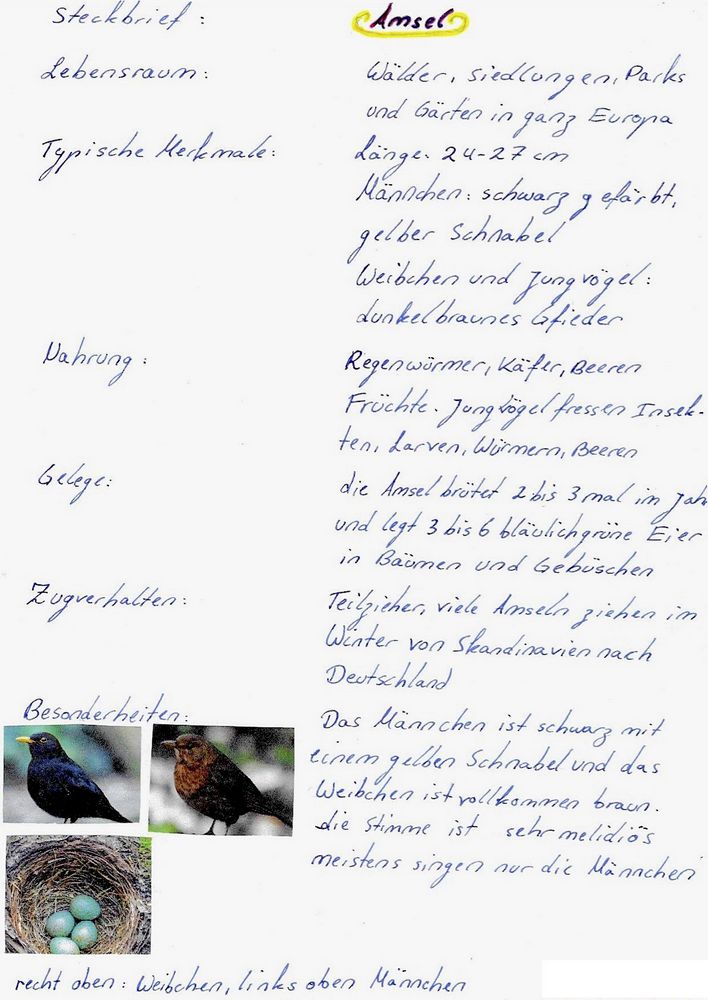 Steckbrief: Amsel
Lebensraum: Wälder, Siedlungen, Parks
und Gärten in ganz Europa
Typische Merkmale: Länge: 24-27 cm
Männchen: schwarz gefärbt,
gelber Schnabel
Weibchen und Jungvögel:
dunkelbraunes Gfieder
Nahrung: Regenwürmer, Käfer, Beeren
Früchte. Jungvögel fressen Insek-
ten, Larven, Würmern, Beeren
Gelege: die Amsel brütet 2 bis 3 mal im Jah
und legt 3 bis 6 bläulichgrüne Eier
in Bäumen und Gebüschen
Zugverhalten: Teilzieher, viele Amseln ziehen im
Winter von Skandinavien nach
Deutschland
Besonderheiten: Das Männchen ist schwarz mit
einem gelben Schnabel und das
Weibchen ist vollkommen braun.
die Stimme ist sehr melidiös
meistens singen nur die Männchen
recht oben: Weibchen, links oben Männchen